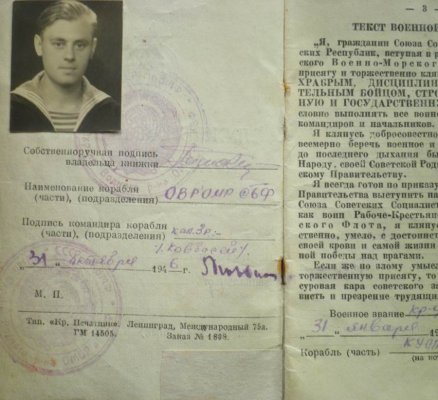 Собственноручная подпись
владельца книжки
Наименование корабля
(части), (подразделения)
ОВРОМР СБФ
Подпись командира корабля
(части), (подразделения)
"31" октября 1946 г.
М. П.
Тип. «Кр. Печатник». Ленинград, Международный 75а.
ГМ 14505. Заказ № 1898.
— 3
ТЕКСТ ВОЕННОЙ
„Я, гражданин Союза Со
ских Республик, вступая в р
ского Военно-Морског
присягу и торжественно кляну
ХРАБРЫМ, ДИСЦИПЛИН
ТЕЛЬНЫМ БОЙЦОМ, СТРО
НУЮ И ГОСУДАРСТВЕНН
словно выполнять все воин
командиров и начальников.
Я клянусь добросовестно
всемерно беречь военное и
до последнего дыхания бы
Народу, своей Советской Род
скому Правительству.
Я всегда готов по приказу
Правительства выступить на
Союза Советских Социалист
как воин Рабоче-Крестьян
ского Флота, я клянус
ственно, умело, с достоинст
своей крови и самой жизни
ной победы над врагами.
Если же по злому умысл
торжественную присягу, то
суровая кара советского за
висть и презрение трудящи
Военное звание кр-
"31" января
Корабль (часть)